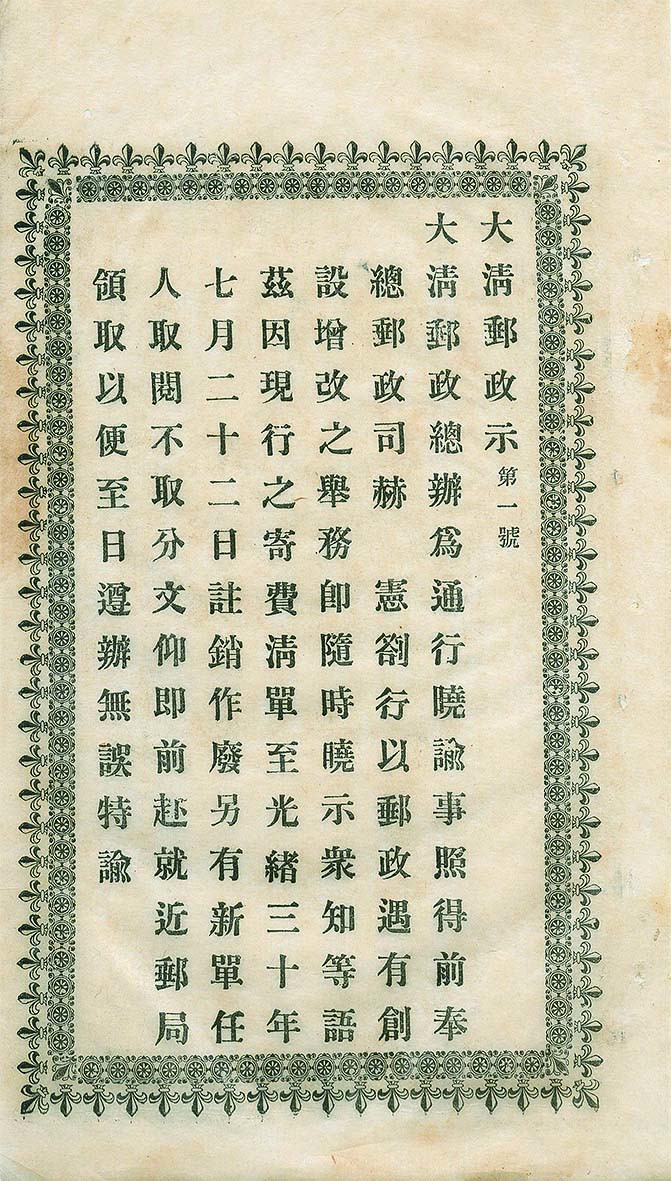 大淸郵政示第一號
大淸郵政總辦爲通行曉諭事照得前奉
總郵政司赫 憲劄行以郵政遇有創
設增改之舉務卽隨時曉示衆知等語
茲因現行之寄費淸單至光緖三十年
七月二十二日註銷作廢另有新單任
人取閱不取分文仰即前赴就近郵局
領取以便至日遵辦無誤特諭